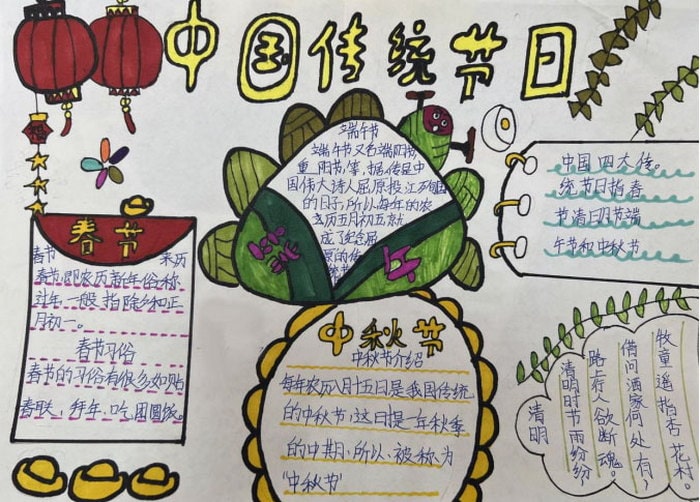 中国传统节日
端午节
端午节又名端阳节,
重阳节,等,据传是中
国伟大诗人屈原投江
的日子,所以每年的农
历五月初五就
成了纪念屈
原的传
统节
春节
春节 来历
春节,即农历新年,俗称
过年,一般指除夕和正
月初一。
春节习俗
春节的习俗有很多如贴
春联,拜年,吃团圆饭。
中国四大传。
统节日指春
节清明节端
午节和中秋节
中秋节
中秋节介绍
每年农历八月十五日是我国传统
的中秋节,这日是一年秋季
的中期,所以、被称为
"中秋节"
清明
清明时节雨纷纷
路上行人欲断魂。
借问酒家何处有,
牧童遥指杏花木。